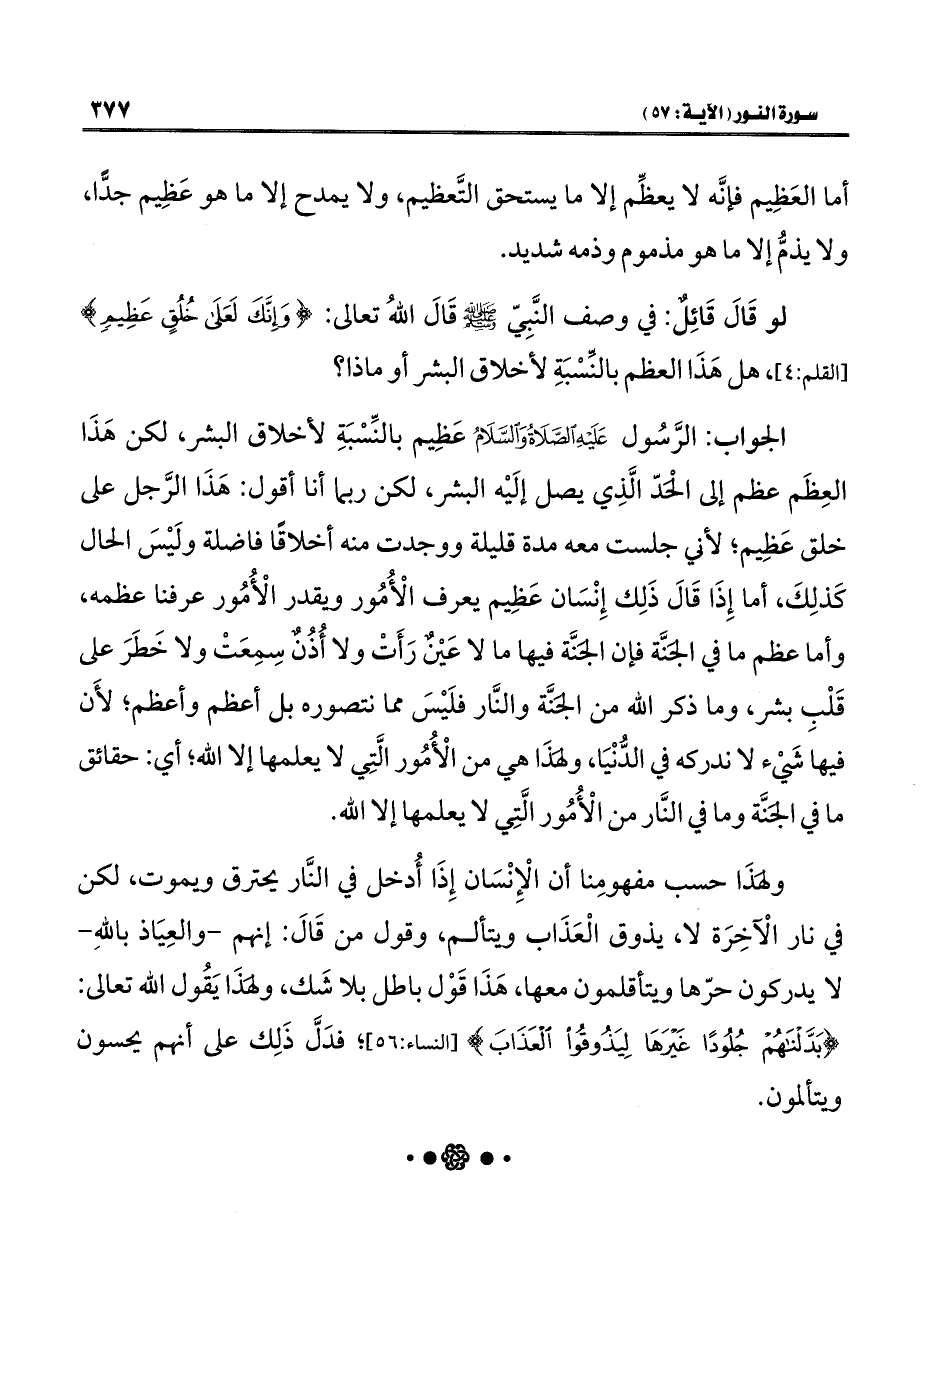 سورة النور (الآية: ٥٧)
٣٧٧
أما العَظِيم فإنَّه لا يعظِّم إلا ما يستحق التَّعظيم، ولا يمدح إلا ما هو عَظِيم جدًّا،
ولا يذمُّ إلا ما هو مذموم وذمه شديد.
لو قَالَ قَائِلٌ: في وصف النَّبِيّ ﷺ قَالَ اللهُ تعالى: ﴿وَإِنَّكَ لَعَلَىٰ خُلُقٍ عَظِيمٍ﴾
[القلم:٤]، هل هَذَا العظم بالنِّسْبَةِ لأخلاق البشر أو ماذا؟
الجواب: الرَّسُول عَلَيْهِ الصَّلَاةُ وَالسَّلَامُ عَظِيم بالنِّسْبَةِ لأخلاق البشر، لكن هَذَا
العِظَم عظم إلى الحَدّ الَّذِي يصل إلَيْه البشر، لكن ربما أنا أقول: هَذَا الرَّجل على
خلق عَظِيم؛ لأني جلست معه مدة قليلة ووجدت منه أخلاقًا فاضلة ولَيْسَ الحال
كَذلِكَ، أما إِذَا قَالَ ذَلِك إِنْسَان عَظِيم يعرف الْأُمُور ويقدر الْأُمُور عرفنا عظمه،
وأما عظم ما في الجَنَّة فإن الجَنَّة فيها ما لا عَيْنٌ رَأَتْ ولا أُذُنٌ سمِعَتْ ولا خَطَرَ على
قَلْبِ بشر، وما ذكر الله من الجَنَّة والنَّار فلَيْسَ مما نتصوره بل أعظم وأعظم؛ لأَن
فيها شَيْء لا ندركه في الدُّنْيَا، ولهَذَا هي من الْأُمُور الَّتِي لا يعلمها إلا الله؛ أي: حقائق
ما في الجَنَّة وما في النَّار من الْأُمُور الَّتِي لا يعلمها إلا الله.
ولهَذَا حسب مفهومِنا أن الْإِنْسَان إِذَا أُدخل في النَّار يحترق ويموت، لكن
في نار الْآخِرَة لا، يذوق الْعَذَاب ويتألم، وقول من قَالَ: إنهم -والعِيَاذ باللهِ-
لا يدركون حرّها ويتأقلمون معها، هَذَا قَوْل باطل بلا شَك، ولهَذَا يَقُول الله تعالى:
﴿بَدَّلْنَاهُمْ جُلُودًا غَيْرَهَا لِيَذُوقُوا الْعَذَابَ﴾ [النساء:٥٦]؛ فدَلَّ ذَلِك على أنهم يحسون
ويتألمون.